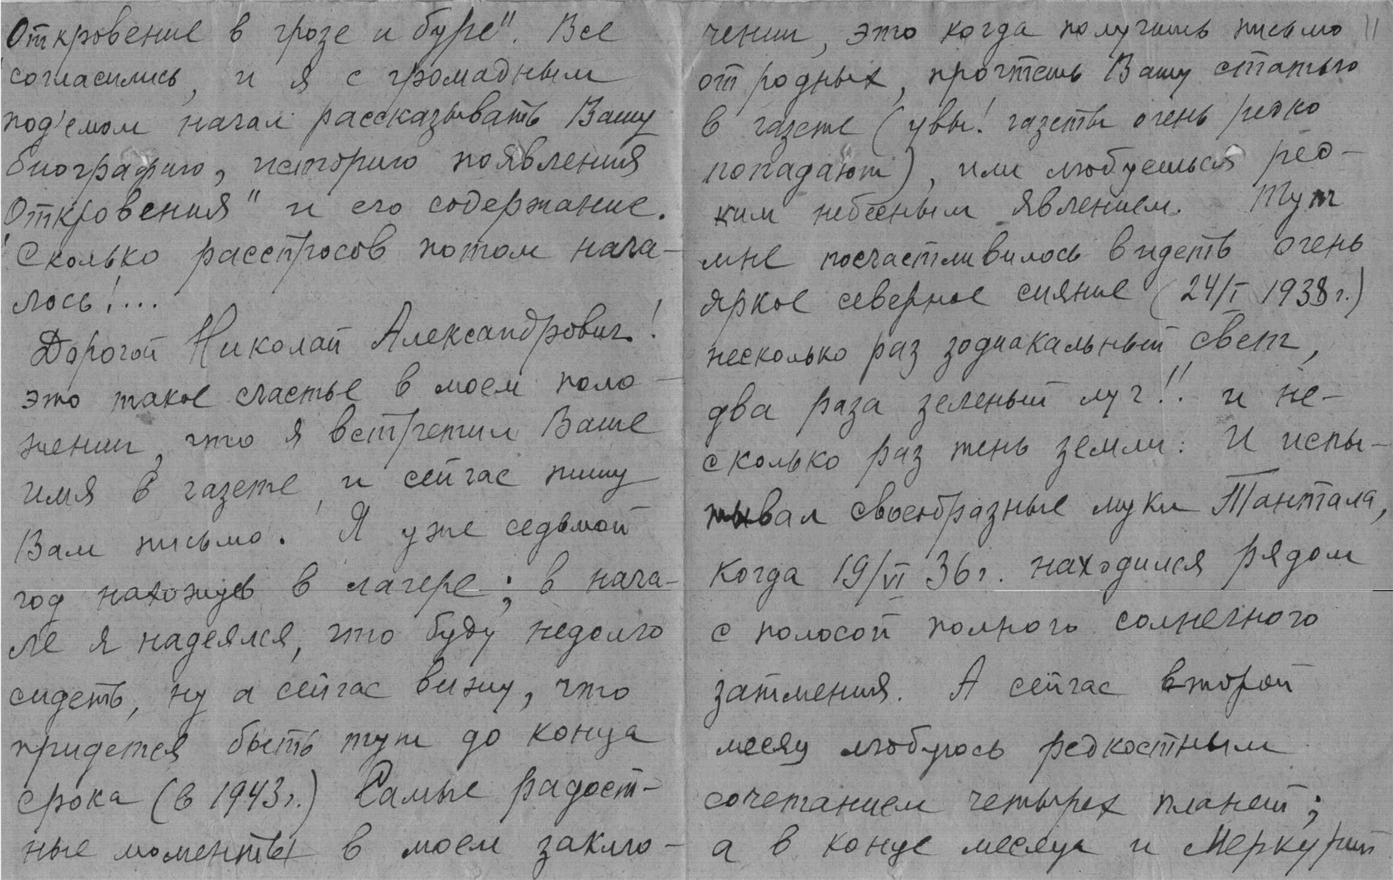 Откровение в грозе и буре". Все
согласились, и я с громадным
под'емом начал рассказывать Вашу
биографию, историю появления
Откровения" и его содержание.
Сколько расспросов потом нача-
лось!...
Дорогой Николай Александрович!
это такое счастье в моем поло-
жении, что я встретил Ваше
имя в газете, и сейчас пишу
Вам письмо! Я уже седьмой
год нахожусь в лагере; в нача-
ле я надеялся, что буду недолго
сидеть, ну а сейчас вижу, что
придется быть тут до конца
срока (в 1943г.) Самые радост-
ные моменты в моем заклю-
чении, это когда получишь письмо
от родных, прочтешь Вашу статью
в газете (увы! газеты очень редко
попадают), или любуешься ред-
ким небесным явлением. Тут
мне посчастливилось видеть очень
яркое северное сияние (24/I 1938г.)
несколько раз зодиакальный свет,
два раза зеленый луч!! и не-
сколько раз тень земли. И испы-
тывал своеобразные муки Тантала,
когда 19/VI 36г. находился рядом
с полосой полного солнечного
затмения. А сейчас второй
месяц любуюсь редкостным
сочетанием четырех планет;
а в конце месяца и Меркурий
11